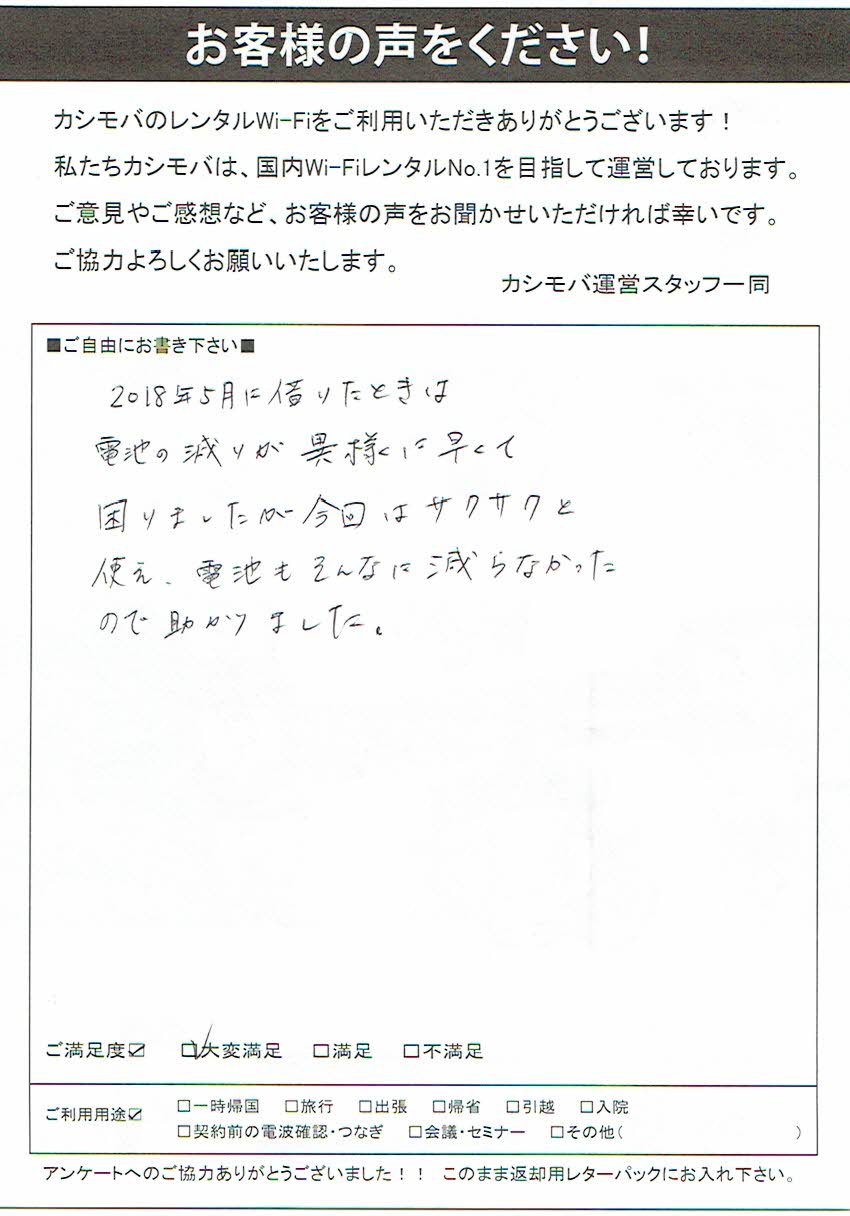 お客様の声をください!
カシモバのレンタルWi-Fiをご利用いただきありがとうございます！
私たちカシモバは、国内Wi-FiレンタルNo.1を目指して運営しております。
ご意見やご感想など、お客様の声をお聞かせいただければ幸いです。
ご協力よろしくお願いいたします。
カシモバ運営スタッフ一同
■ご自由にお書き下さい■
2018年5月に借りたときは
電池の減りが異様に早くて
困りましたが今回はサクサクと
使え、電池もそんなに減らなかった
ので助かりました。
ご満足度☑ ☑大変満足 □満足 □不満足
ご利用用途☑ □一時帰国 □旅行 □出張 □帰省 □引越 □入院
□契約前の電波確認・つなぎ □会議・セミナー □その他( )
アンケートへのご協力ありがとうございました！！ このまま返却用レターパックにお入れ下さい。